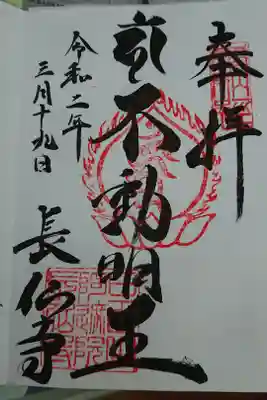 奉拝
不動明王
令和二年
三月十九日
長仙寺